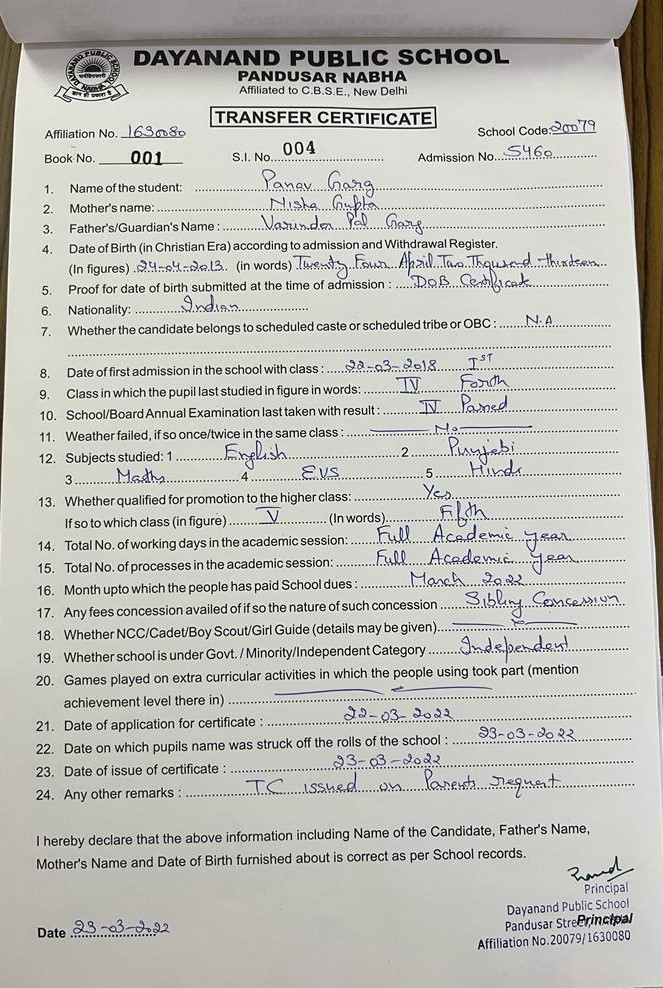 DAYANAND PUBLIC SCHOOL
PANDUSAR NABHA
Affiliated to C.B.S.E., New Delhi
TRANSFER CERTIFICATE
Affiliation No. 1630080 School Code: 20079
Book No. 001 S.I. No. 004 Admission No. 5460
1. Name of the student: Panav Garg
2. Mother's name: Nisha Gupta
3. Father's/Guardian's Name : Varinder Pal Garg
4. Date of Birth (in Christian Era) according to admission and Withdrawal Register.
(In figures) 24-04-2013 (in words) Twenty Four April Two Thousand thirteen
5. Proof for date of birth submitted at the time of admission : DOB Certificate
6. Nationality: Indian
7. Whether the candidate belongs to scheduled caste or scheduled tribe or OBC : N.A
8. Date of first admission in the school with class : 22-03-2018 IST
9. Class in which the pupil last studied in figure in words: IV Forth
10. School/Board Annual Examination last taken with result : IV Passed
11. Weather failed, if so once/twice in the same class : No
12. Subjects studied: 1 English 2 Punjabi
3 Maths 4 EVS 5 Hindi
13. Whether qualified for promotion to the higher class: Yes
If so to which class (in figure) V (In words) Fifth
14. Total No. of working days in the academic session: Full Academic year
15. Total No. of processes in the academic session: Full Academic year
16. Month upto which the people has paid School dues : March 2022
17. Any fees concession availed of if so the nature of such concession Sibling Concession
18. Whether NCC/Cadet/Boy Scout/Girl Guide (details may be given)
19. Whether school is under Govt. / Minority/Independent Category Independent
20. Games played on extra curricular activities in which the people using took part (mention
achievement level there in)
21. Date of application for certificate : 22-03-2022
22. Date on which pupils name was struck off the rolls of the school : 23-03-2022
23. Date of issue of certificate : 23-03-2022
24. Any other remarks : TC issued on Parents request
I hereby declare that the above information including Name of the Candidate, Father's Name,
Mother's Name and Date of Birth furnished about is correct as per School records.
Principal
Dayanand Public School
Pandusar Principal
Date 23-03-2022
Affiliation No.20079/1630080